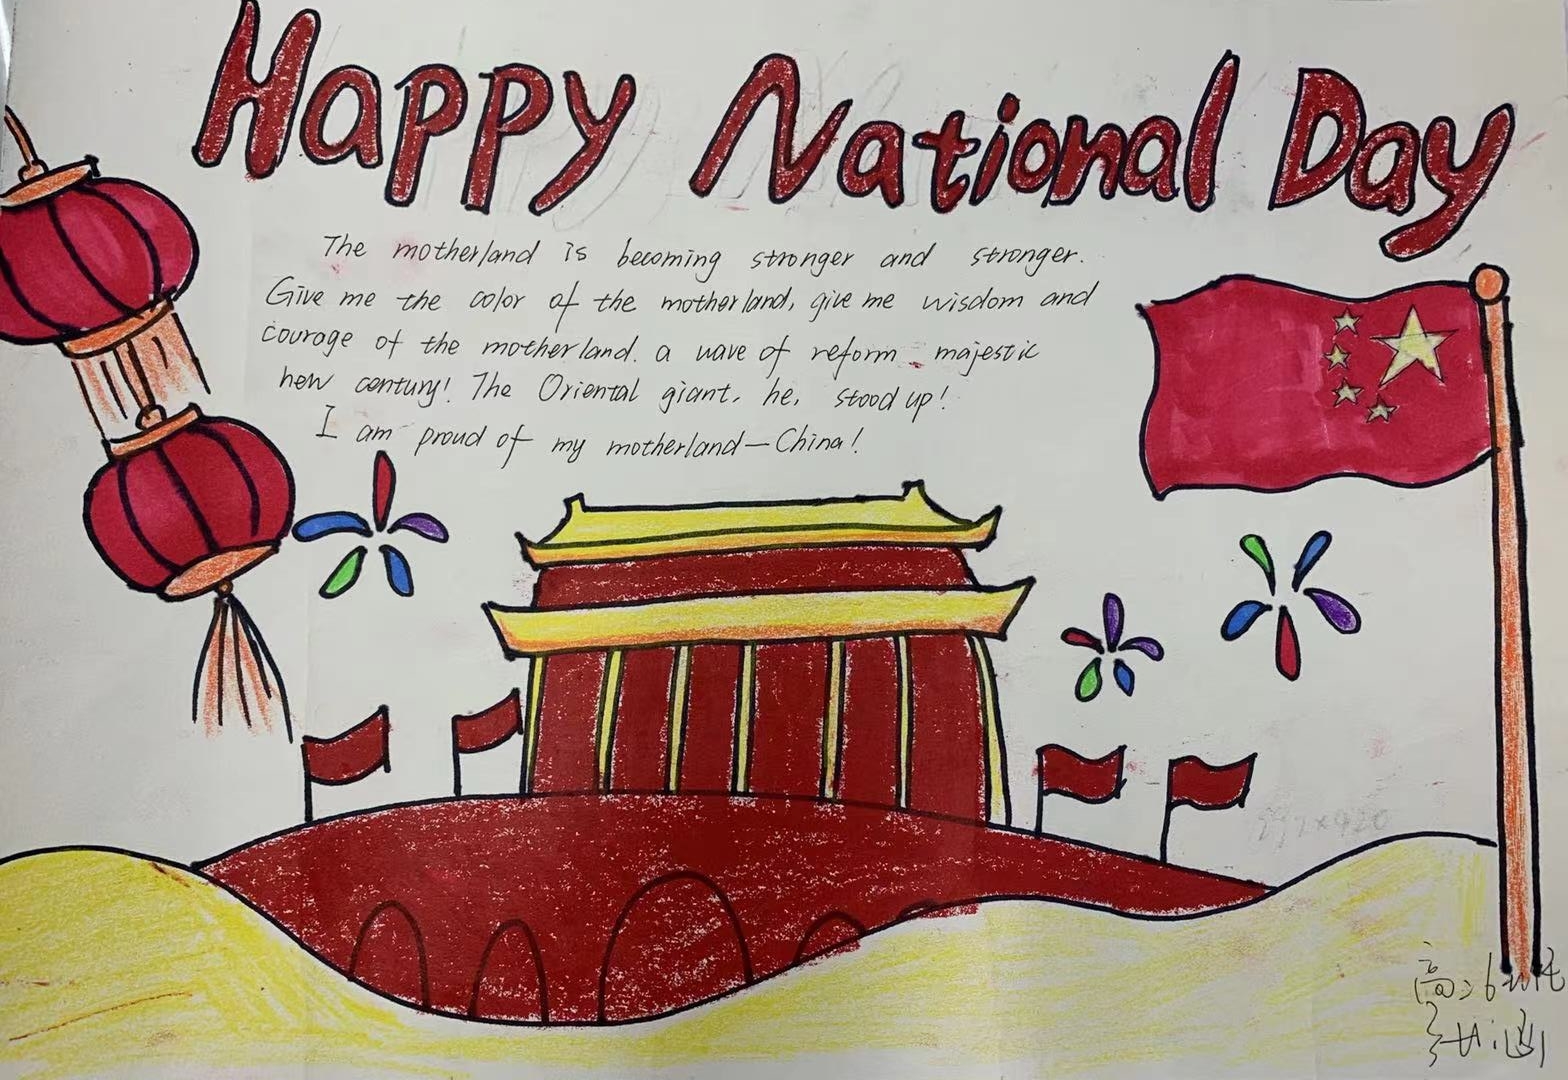 Happy National Day
The motherland is becoming stronger and stronger.
Give me the color of the motherland, give me wisdom and
courage of the motherland. a wave of reform majestic
new century! The Oriental giant, he, stood up!
I am proud of my motherland—China!